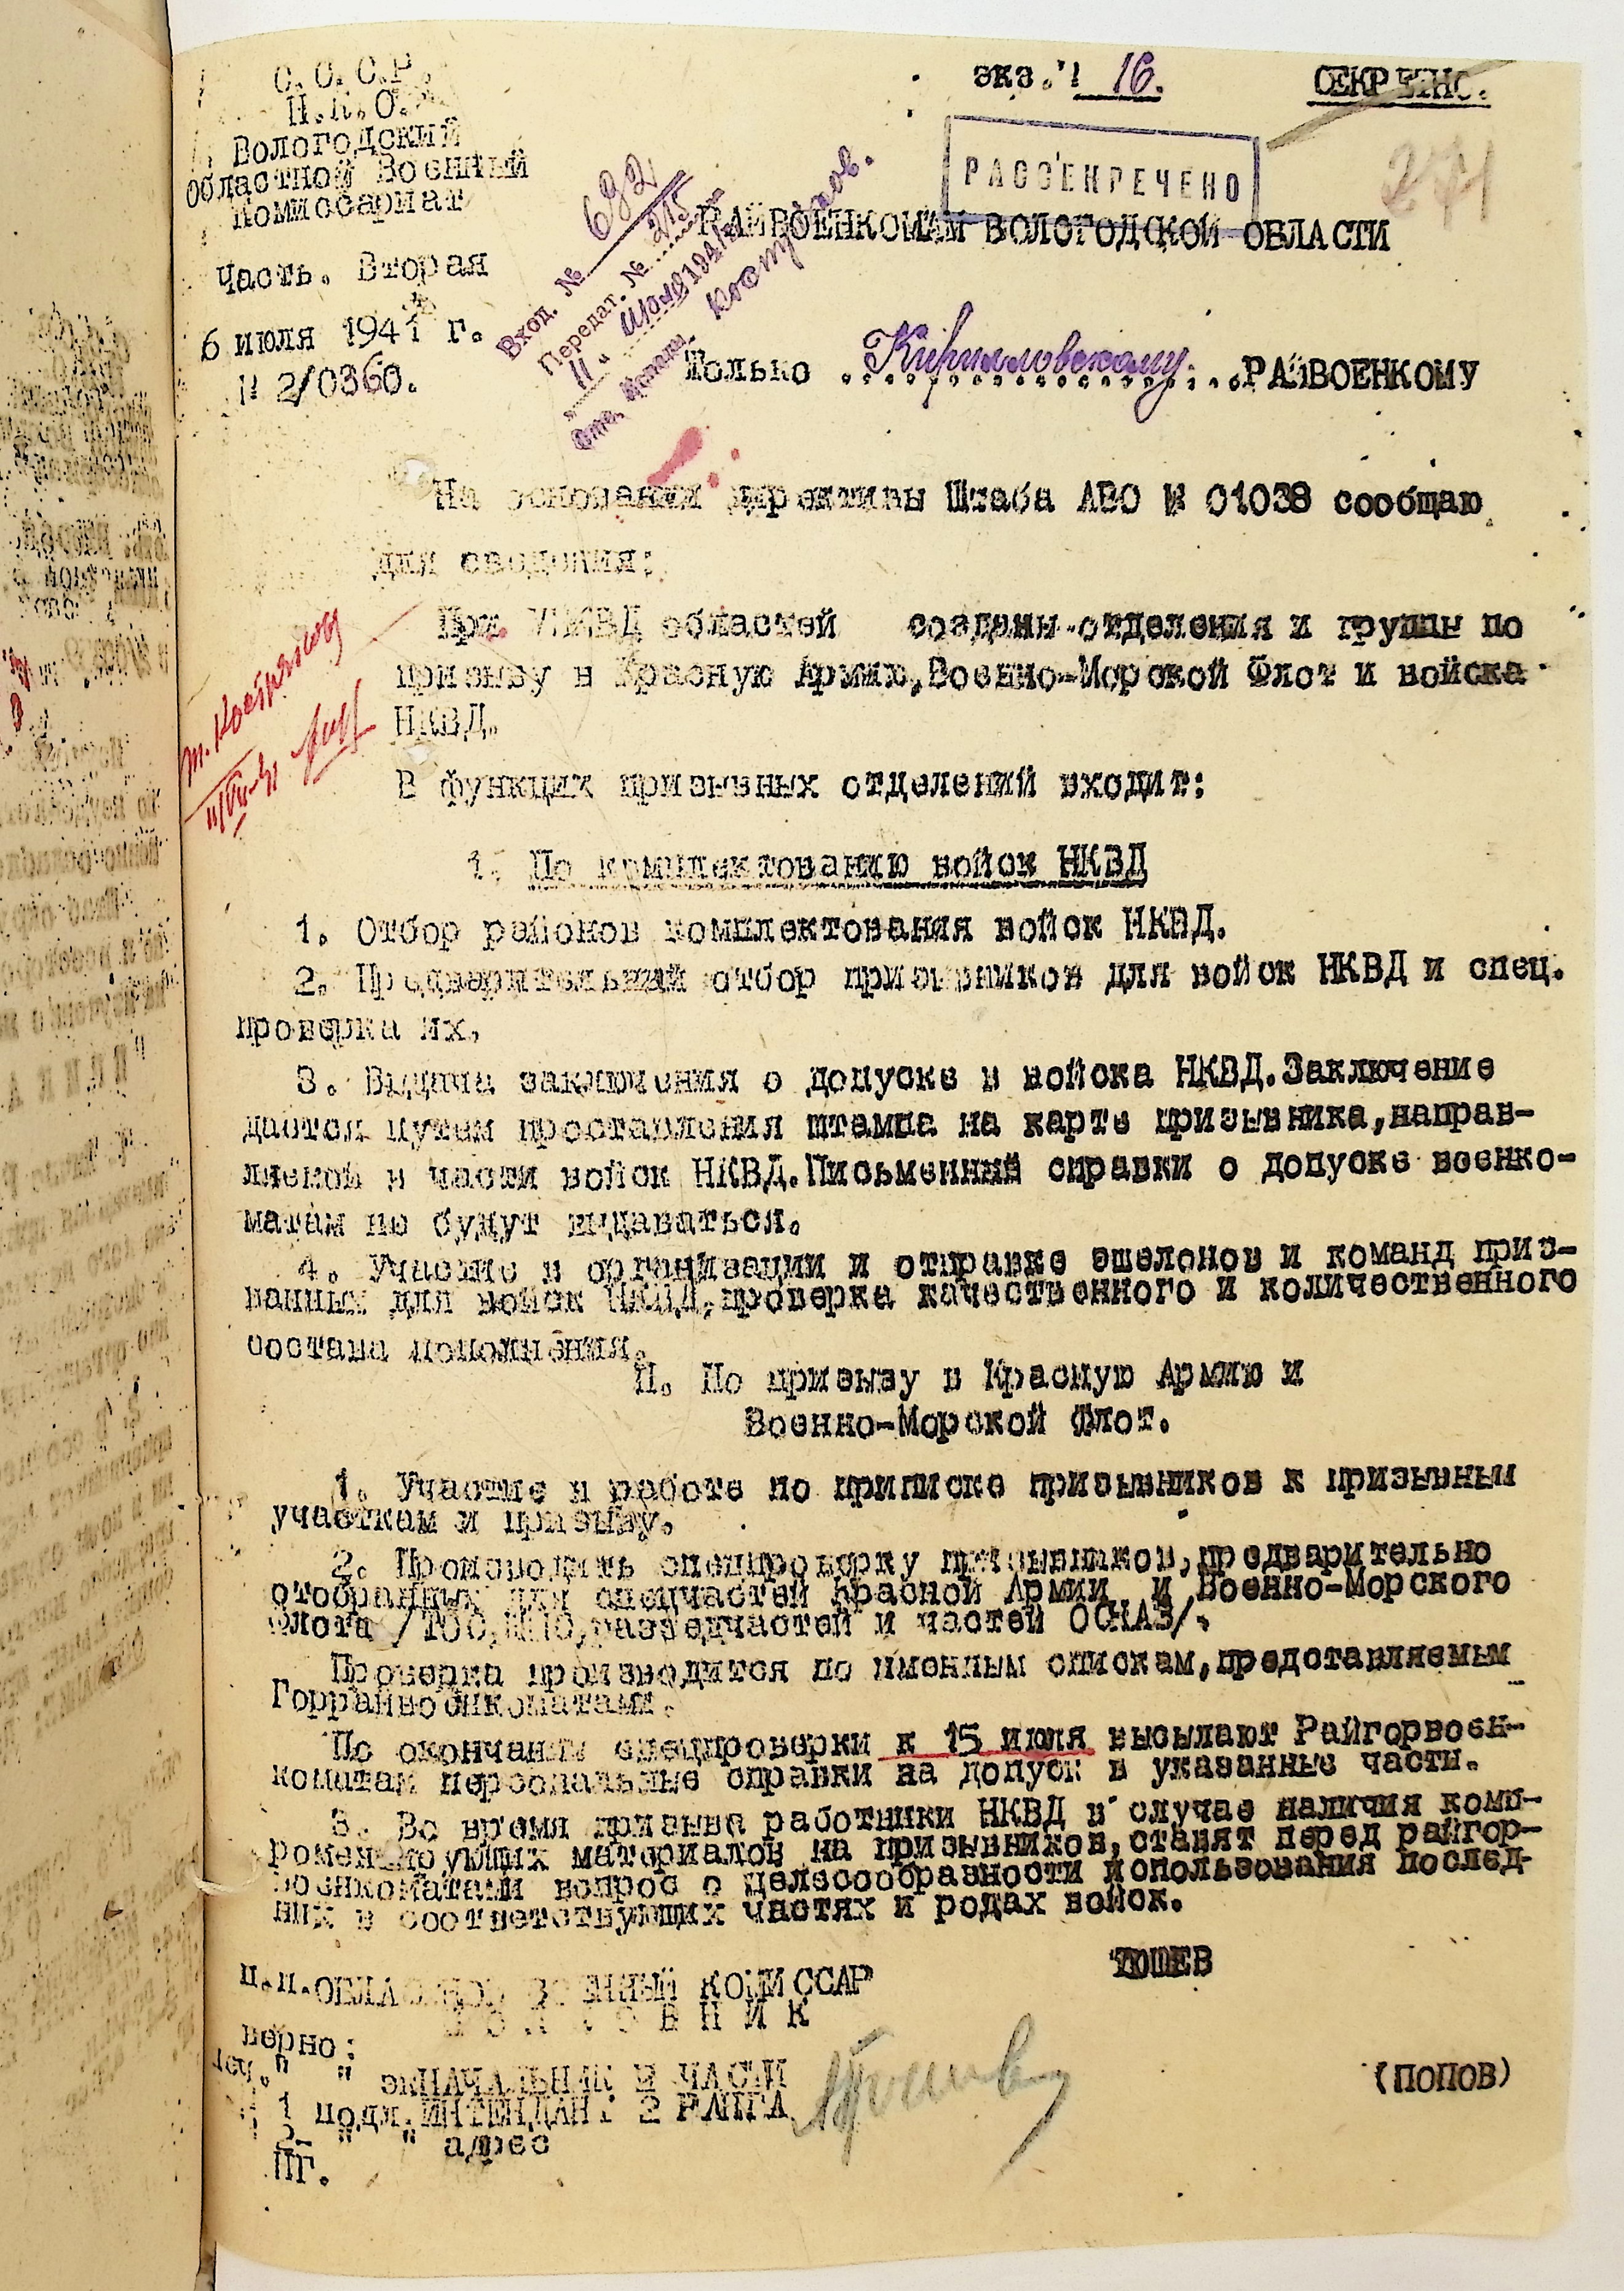 С.О.С.Р.
Н.К.О.
Вологодский
областной Военный
Комиссариат
Часть. Вторая
6 июля 1941 г.
№ 2/0360.
экз.№ 16.
СЕКРЕТНО.
РАССЕКРЕЧЕНО
271
Вход. № 682
Передат. № 215
"11" июля 1941
РАЙВОЕНКОМАМ ВОЛОГОДСКОЙ ОБЛАСТИ
Только Кирилловскому РАЙВОЕНКОМУ
На основании директивы Штаба АВО № 01038 сообщаю
для сведения:
При УНКВД областей созданы отделения и группы по
призыву в Красную Армию,Военно-Морской Флот и войска
НКВД.
В функции призывных отделений входит:
1. По комплектованию войск НКВД
1. Отбор районов комплектования войск НКВД.
2. Предварительный отбор призывников для войск НКВД и спец.
проверка их.
3. Выдача заключения о допуске в войска НКВД.Заключение
дается путем проставления штампа на карте призывника,направ-
ляемой в части войск НКВД.Письменный справки о допуске военко-
матам не будут выдаваться.
4. Участие в организации и отправке эшелонов и команд приз-
ванных для войск НКВД,проверка качественного и количественного
состава пополнения.
П. По призыву в Красную Армию и
Военно-Морской Флот.
1. Участие в работе по приписке призывников к призывным
участкам и призыву.
2. Производить спецпроверку призывников,предварительно
отобранных для спецчастей Красной Армии и Военно-Морского
Флота /ТОС, разведчастей и частей ОСНАЗ/.
Проверка производится по именным спискам,представляемым
Горрайвоенкоматами.
По окончании спецпроверки к 15 июля высылают Райгорвоен-
коматам персональные справки на допуск в указанные части.
3. Во время призыва работники НКВД в случае наличия комп-
роментирующих материалов на призывников,ставят перед райгор-
военкоматами вопрос о целесообразности использования послед-
них в соответствующих частях и родах войск.
п.п.ОБЛАСТНОЙ ВОЕННЫЙ КОМИССАР
ПОЛКОВНИК
ТОПЕВ
верно:
НАЧАЛЬНИК 2 ЧАСТИ
ИНТЕНДАНТ 2 РАНГА
(ПОПОВ)
1 подл.
2 " " адрес
ПГ.
т. Кострякову
11/VII-41